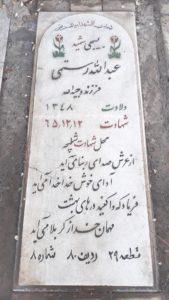 بسیجی شهید
عبدالله رستمی
فرزند وجیه الله
ولادت ۱۳۴۸
شهادت ۶۵,۱۲,۱۲
محل شهادت شلمچه
از عرش صدای ربنا می آید
آوای خوش خدا خدا می آید
فریاد که واکنید درهای بهشت
مهمان خدا ز کربلا می آید
قطعه ۲۹ ردیف ۸۰ شماره ۸